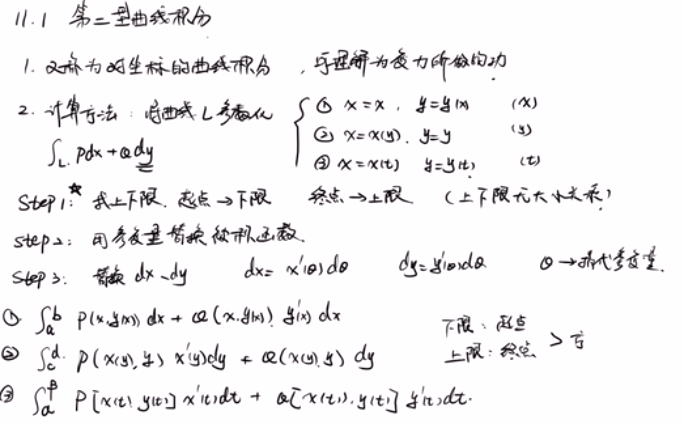 11.1 第二型曲线积分
1. 又称为对坐标的曲线积分，可理解为变力所做的功
2. 计算方法：将曲线L参数化 { ① x=x, y=y(x) (x)
② x=x(y), y=y (y)
∫L Pdx+Qdy ③ x=x(t) y=y(t) (t)
Step1:★ 找上下限. 起点→下限 终点→上限 (上下限无大小关系)
step2: 用参变量替换被积函数.
Step3: 替换 dx、dy dx=x'(θ)dθ dy=y'(θ)dθ θ→指代参变量.
① ∫_a^b P(x,y(x))dx+Q(x,y(x)) y'(x)dx
下限：起点
② ∫_c^d P(x(y),y) x'(y)dy+Q(x(y),y) dy
上限：终点 >
③ ∫_α^β P[x(t),y(t)] x'(t)dt+Q[x(t),y(t)] y'(t)dt.